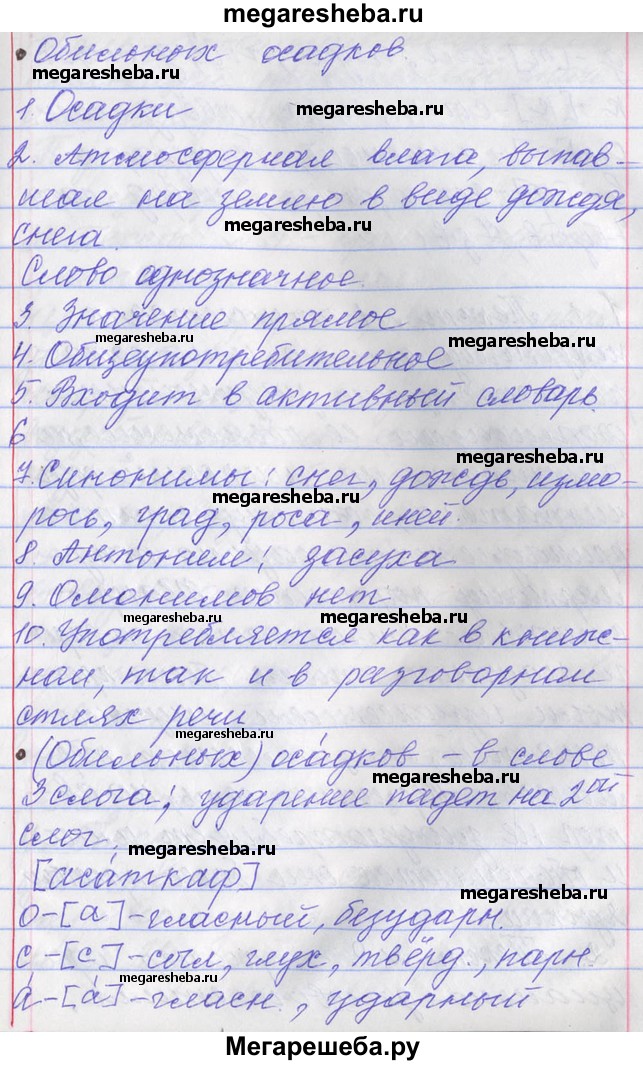 megaresheba.ru
• Обильных осадков
megaresheba.ru
1. Осадки
megaresheba.ru
2. Атмосферная влага, выпав-
шая на землю в виде дождя,
megaresheba.ru
снега.
Слово однозначное.
3. Значение прямое
megaresheba.ru
megaresheba.ru
4. Общеупотребительное
5. Входит в активный словарь.
6
megaresheba.ru
7. Синонимы: снег, дождь, измо-
megaresheba.ru
рось, град, роса, иней.
8. Антоним: засуха
megaresheba.ru
9. Омонимов нет
megaresheba.ru
10. Употребляется как в книж-
ном, так и в разговорном
стлях речи
megaresheba.ru
• (Обильных) оса́дков – в слове
megaresheba.ru
3 слога; ударение падет на 2ой
слог.
megaresheba.ru
[аса́ткаф]
megaresheba.ru
о-[а]-гласный, безударн.
с-[с]-согл, глух, твёрд., парн.
megaresheba.ru
а́-[а́]-гласн., ударный
Мегарешеба.ру